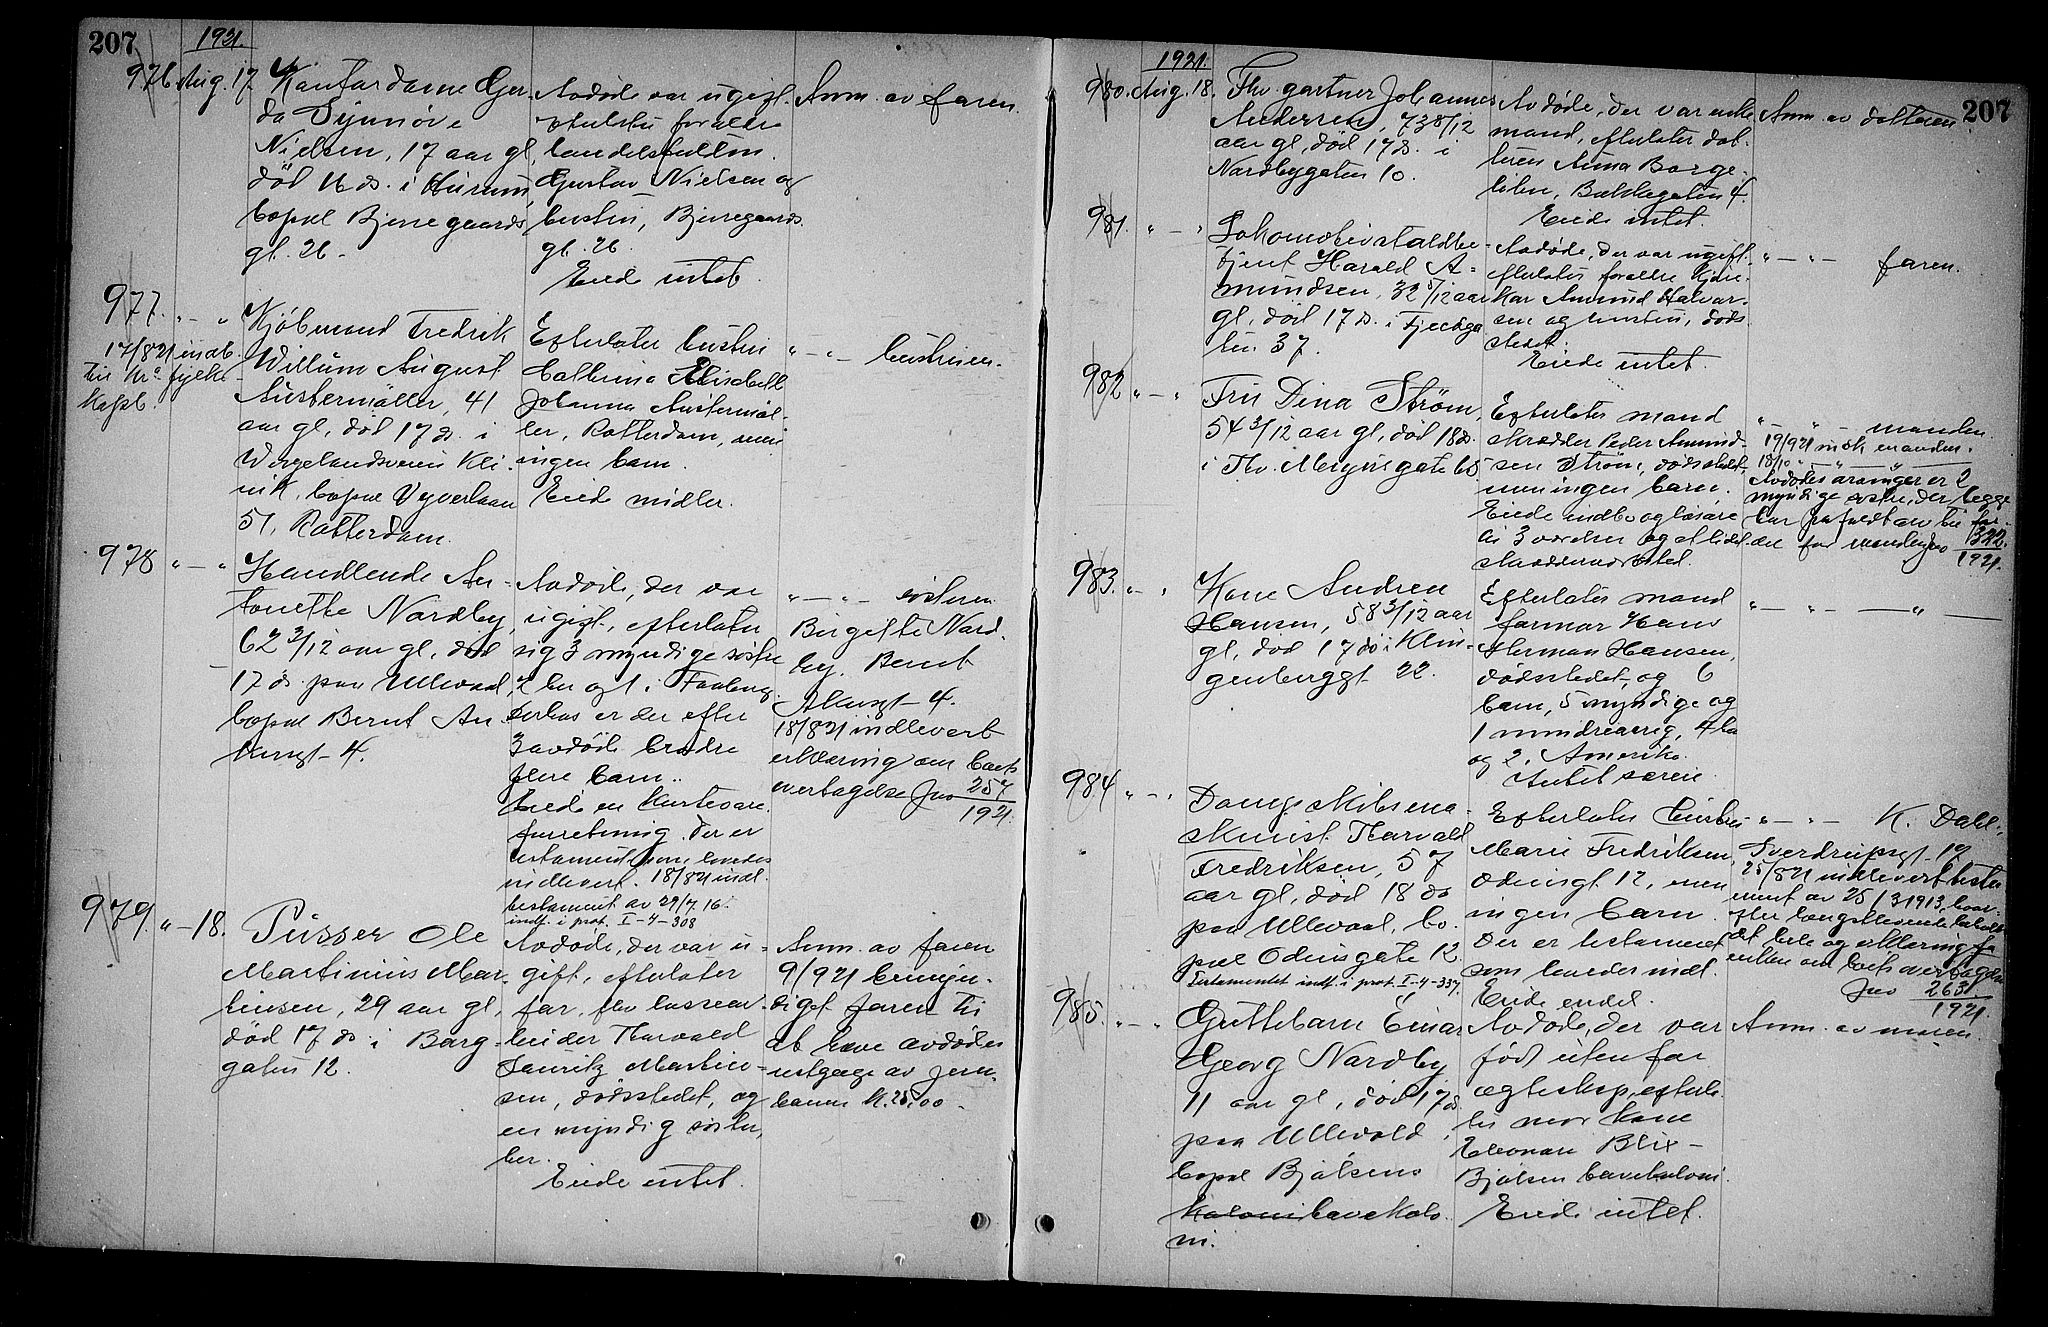 207
1921.
976 Aug. 17. Kontordame Ger-
da Synnøve
Nielsen, 17 aar gl.,
død 16 ds. i Hurum,
bopæl Bjerregaards
gt. 26.
Avdøde var ugift.
Efterlater forældre
handelsfullm.
Gustav Nielsen og
hustru, Bjerregaards
gt. 26
Eiede intet.
Anm. av faren.
977. " — "
17/8 21 indb.
Kjøbmand Fredrik
Willum August
Austermøller, 41
aar gl., død 17 ds. i
Wergelandsveien Kli-
nik, bopæl Vyverlaan
51, Rotterdam.
Efterlater hustru
Cathrina Elisabeth
Johanna Austermøl-
ler, Rotterdam, men
ingen barn.
Eied midler.
" — " — hustruen.
978 " — "
Handlende An-
tonette Nordby,
62 3/12 aar gl., død
17 ds. paa Ullevaal,
bopæl Bernt An
kersgt. 4.
Avdøde, der var
ugift, efterlater
sig 3 myndige søstre
2 her og 1 i Faaberg.
Derhos er der efter
3 avdøde brødre
flere barn.
Eied en kortevare
forretning. Der er
testament som lovedes
indlevert. 18/8 21 indl.
testament av 29/7. 16.
indf. i prot. I-4-308
" — " — søsteren
Birgitte Nord-
by, Bernt
Ankersgt. 4.
18/8 21 indlevert
erklæring om boets
overtagelse Jno 257
1921.
979. " — 18.
Pusser Ole
Martinius Mar-
tinsen, 29 aar gl.,
død 17 ds. i Borg-
gaten 12.
Avdøde, der var u-
gift, efterlater
far, fhv. lossear-
beider Thorvald
Lauritz Martin-
sen, dødsstedet, og
en myndig søster,
her.
Eiede intet.
Anm. av faren
9/9 21 bemyn-
diget faren til
at heve avdødes
utgode av Jern-
banen K. 25.00.
207
1921.
980. Aug. 18.
Fhv. gartner Johannes
Andersen, 73 8/12
aar gl., død 17 ds. i
Nordbygaten 10.
Avdøde, der var enke
mand, efterlater dat-
teren Anna Borge-
Eiede intet.
Anm. av datteren
981. " — "
Lokomotivstaldbe-
tjent Harald A-
mundsen, 32 5/12 aar
gl., død 17 ds. i Tjerdga
ten 37.
Avdøde, der var ugift
efterlater forældre Kjøre-
kar Amund Halvor-
sen og hustru, døds
stedet.
Eiede intet.
" — " — faren.
982 " — "
Fru Dina Strøm,
54 3/12 aar gl., død 18 ds.
i Thv. Meyersgate 65
Efterlater mand
skrædder Peder Amund-
sen Strøm, dødsstedet,
men ingen barn.
Eiede indbo og løsøre
i 3 værelser og et litet
skrædderverksted.
" — " — manden
19/9 21 indk manden.
18/10 " — " — " —
Avdødes arvinger er 2
myndige søstre, der begge
har frafaldt arv til for-
del for manden Jno 322.
1921.
983. " — "
Kone Andrea
Hansen, 58 3/12 aar
gl., død 17 ds i Klin-
genberggt. 22.
Efterlater mand
formar Hans
Herman Hansen,
dødsstedet, og 6
barn, 5 myndige og
1 mindreaarig, 4 her
og 2 i Amerika.
Intet særeie.
" — " — " —
984 " — "
Dampskibsma-
skinist Thorvald
Fredriksen, 57
aar gl., død 18 ds
paa Ullevaal, bo-
pæl Odinsgate 12
Testamentet indf. i prot. I-4-337.
Efterlater hustru
Marie Fredriksen,
Odinsgt. 12, men
ingen barn.
Der er testament
som lovedes indl.
Eiede endel.
" — " — K. Dahl,
Sverdrupsgt. 19
25/8 21 indlevert testa
ment av 25/3 1913, hvor-
efter længstlevende beholder
det hele og erklæring fra
enken om boets overtagelse
Jno 263.
1921.
985. " — "
Guttebarn Einar
Georg Nordby
11 aar gl., død 17 ds.
paa Ullevold,
bopæl Bjølsens
Koloni havekolo
ni.
Avdøde, der var
født uten for
egteskap, efterla-
ter mor kone
Eleonore Blix
Bjølsen havekoloni.
Eiede intet.
Anm. av moren.